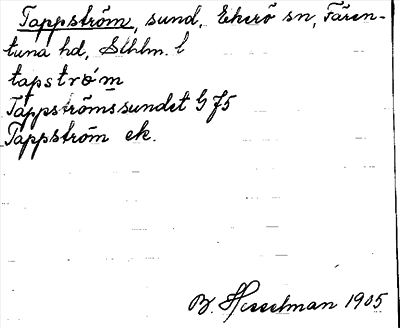 Tappström, sund, Ekerö sn, Fären-
tuna hd, Sthlm. l
tapström
Tappströmssundet G 75
Tappström ek.
B. Hesselman 1905